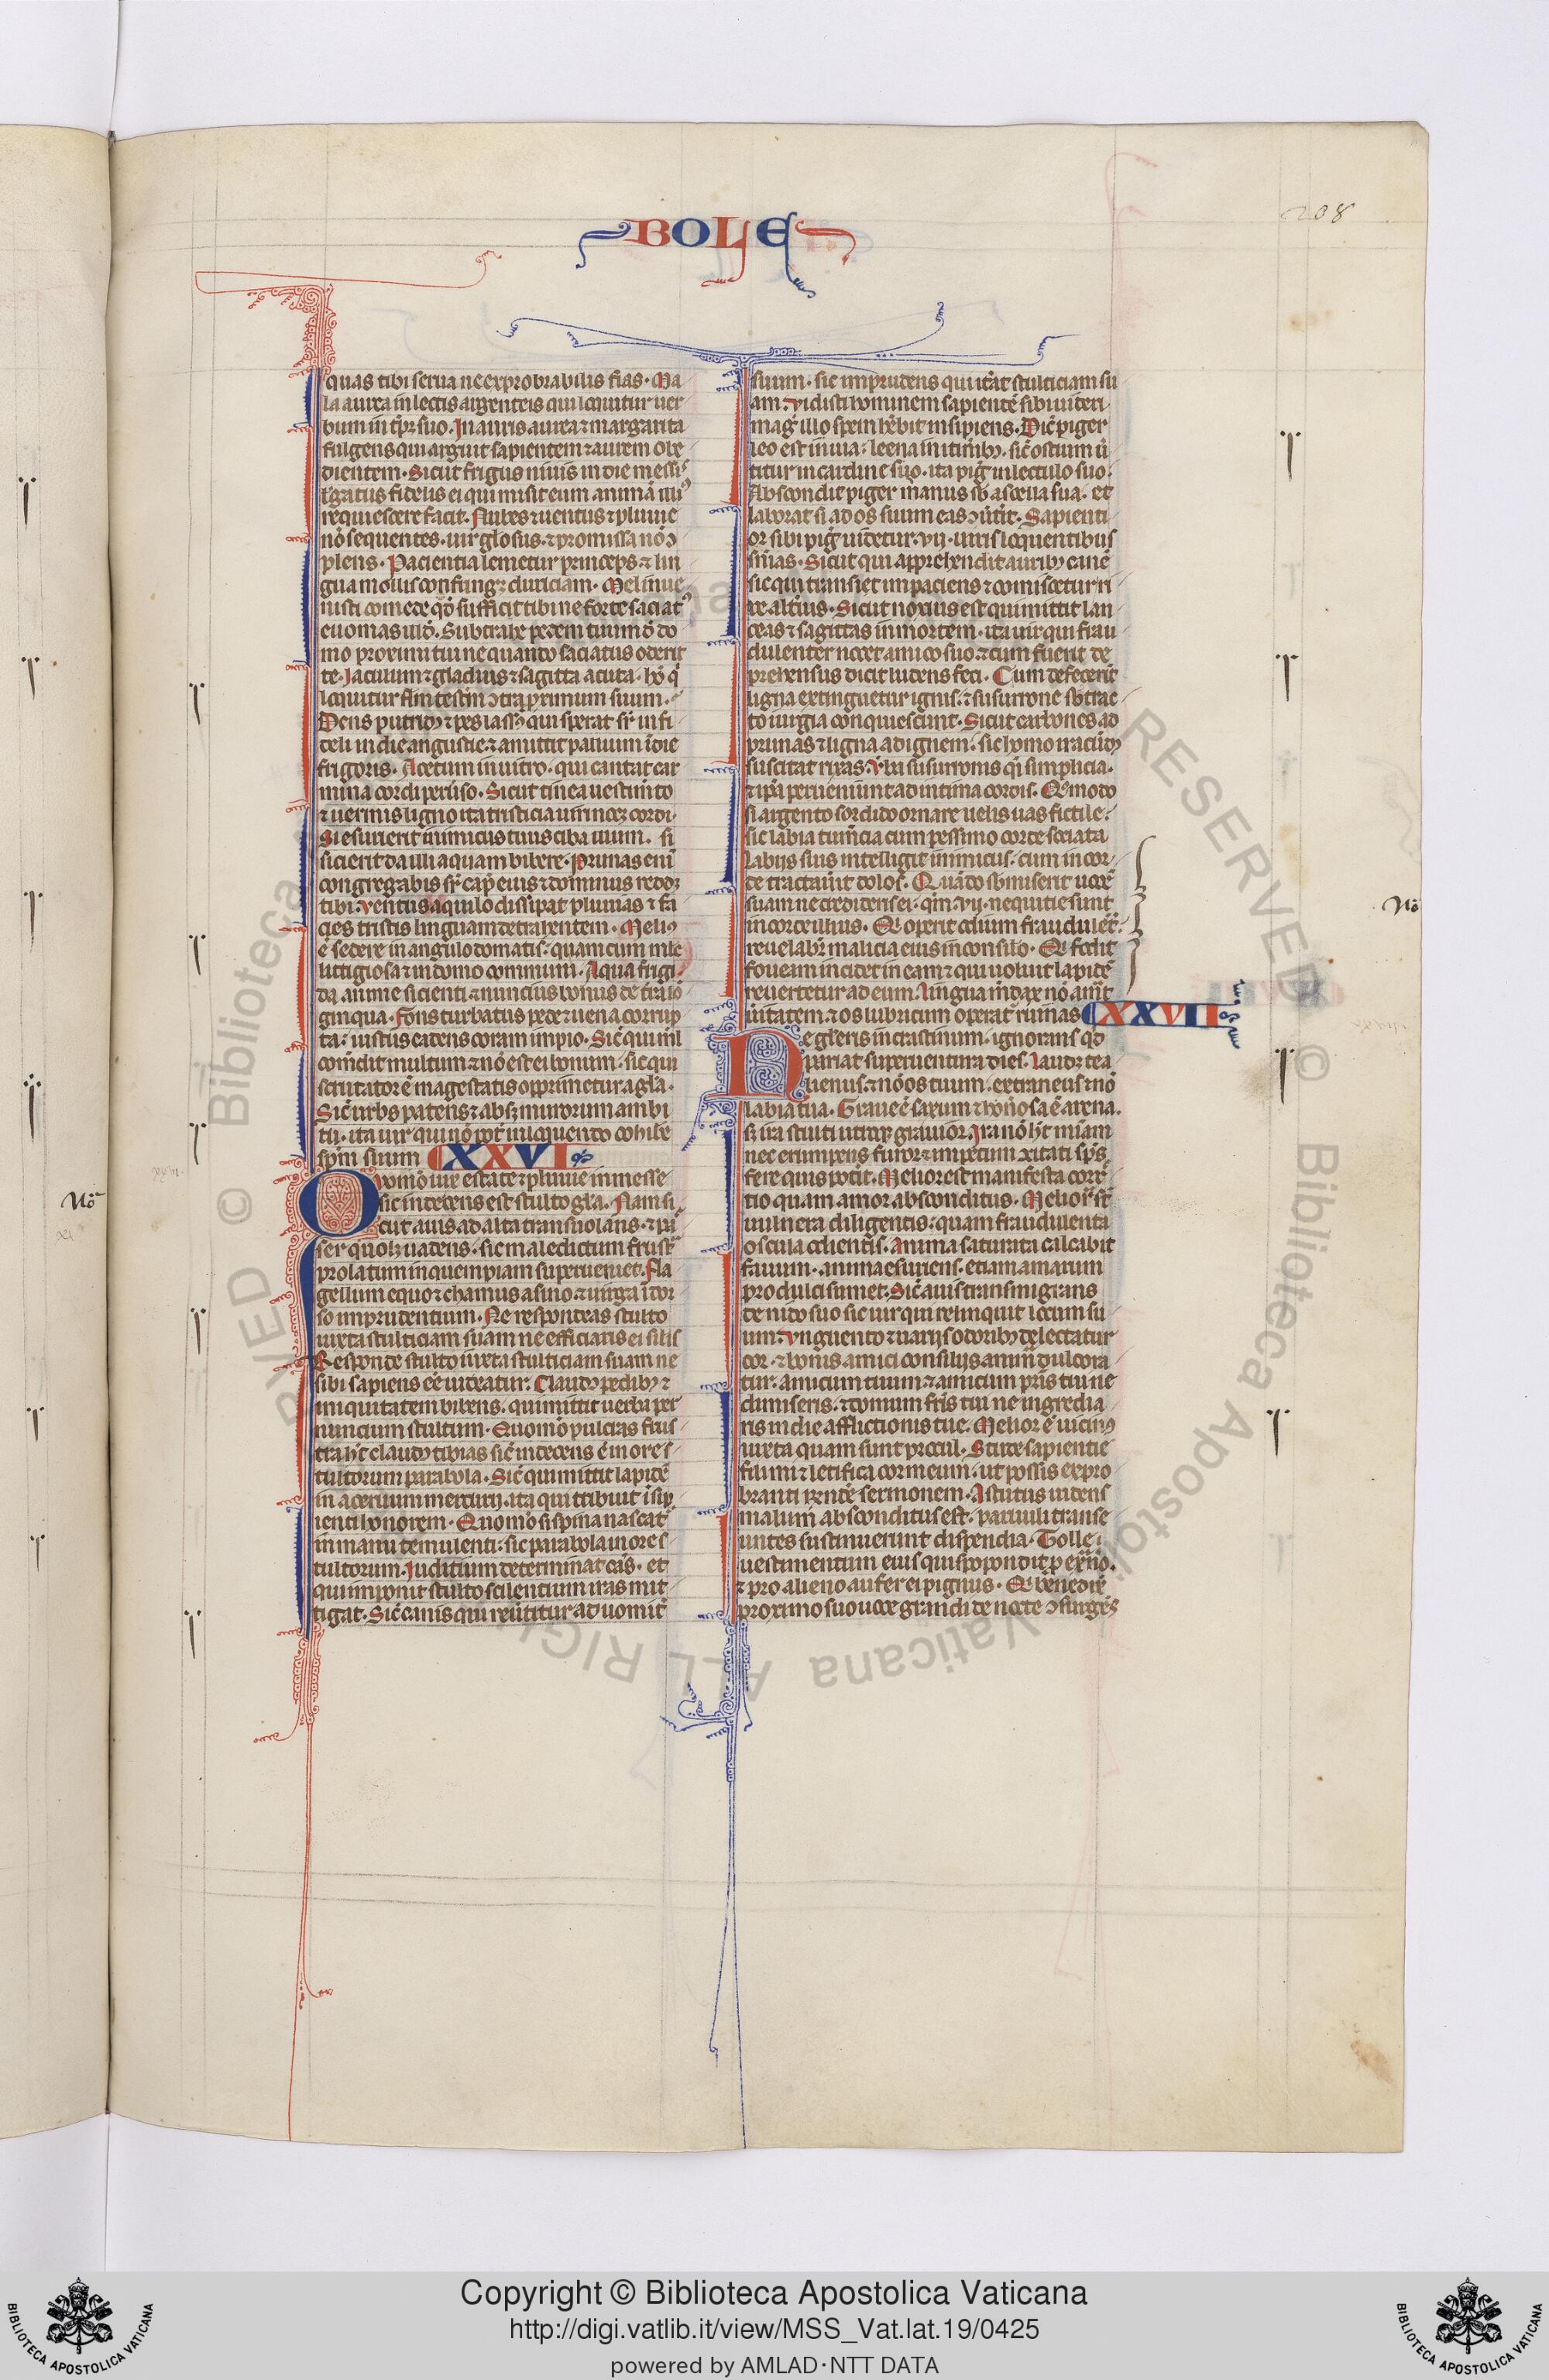 208
BOLE
quas tibi serua ne exprobrabilis fias. Ma
la aurea in lectis argenteis qui loquitur uer
bum in tp̄r suo. Inauris aurea ⁊ margarita
fulgens qui arguit sapientem ⁊ aurem obe
dientem. Sicut frigus niuis in die messis
legatus fidelis ei qui misit eum. animā illiꝰ
requiescere facit. Nubes ⁊ uentus ⁊ pluuie
nō sequentes. uir gl̄osus. ⁊ promissa nō ꝯ
plens. Paciencia lenietur princeps. ⁊ lin
gua mollis confringet duriciam. Mel inue
nisti comede qd̄ sufficit tibi ne forte saciatꝰ
euomas illd̄. Subtrahe pedem tuum d̄ do
mo proximi tui ne quando saciatus oderit
te. Iaculum ⁊ gladius ⁊ sagitta acuta. hō q̄
loquitur falsm̄ testim̄ ꝯtra proximum suum.
Dens putridꝰ ⁊ pes lassꝰ qui sperat sr̄ infi
deli in die angustie. ⁊ amittit pallium ī die
frigoris. Acetum in uitro. qui cantat car
mina cordi pessīo. Sicut tinea uestimento
⁊ uermis ligno ita tristicia uiri nocet cordi.
Si esurierit inimicus tuus ciba illum. si
sicierit da illi aquam bibere. Prunas enī
congregabis sr̄ cap̄ eius ⁊ dominus reddet
tibi. Ventus aquilo dissipat pluuias ⁊ fa
cies tristis linguam detrahentem. Meliꝰ
ē sedere in angulo domatis: quam cum mlē
litigiosa ⁊ in domo communi. Aqua frigi
da anime sicienti. ⁊ nuncius bonus de tr̄a lō
ginqua. Fons turbatus pede ⁊ uena corrup
ta: iustus cadens coram impio. Sic̄ qui mł
comedit multum ⁊ nō est ei bonum. sic qui
scrutator ē magestatis opprimetur a gl̄a.
Sic̄ urbs patens ⁊ absꝫ murorum ambi
tu. ita uir qui nō pot̄ in loquendo cohibe
sp̄m suum CXXVI
Quomō nix estate ⁊ pluuie in messe
sic indecens est stulto gl̄a. Nam si
cut auis ad alta transuolans. ⁊ pas
ser quolibꝫ uadens. sic maledictum frustra
prolatum in quempiam superueniet. Fla
gellum equo ⁊ chamus asino. ⁊ uirga ī dor
so imprudentium. Ne respondeas stulto
iuxta stulticiam suam ne efficiaris ei silis
Responde stulto iuxta stulticiam suam ne
sibi sapiens eē uideatur. Claudꝰ pedibꝰ ⁊
iniquitatem bibens. qui mittit uerba per
nuncium stultum. Quomō pulcras frus
tra hēt claudꝰ tibias sic̄ indecens ē in ore s
tultorum parabola. Sic̄ qui mittit lapidē
in aceruum mercurij. ita qui tribuit īsip
ienti honorem. Quomō si spina nascat̄
in manu temulenti: sic parabola in ore s
tultorum. Iuditium determinat cās. et
qui imponit stulto scilentium iras mit
tigat. Sic̄ canis qui reu̅titur ad uomit̄
suum. sic imprudens qui it̄at stulticiam su
am. Vidisti hominem sapientē sibi uideri
mag̃ illo spem hēbit insipiens. Dic̄ piger
leo est in uia: leena in itin̄ibꝰ. sic̄ ostium u̅
titur in cardine suo. ita pig̃ in lectulo suo.
Abscondit piger manus sb̄ ascella sua. et
laborat si ad os suum eas ꝯu̅t̄it. Sapienti
or sibi pig̃ uidetur. vij. uiris loquentibus
sn̄ias. Sicut qui apprehendit auribꝰ canē
sic qui transiet impaciens ⁊ comiscetur ri
xe altīus. Sicut noxius est qui mittit lan
ceas ⁊ sagittas in mortem. ita uir qui frau
dulenter nocet amico suo. ⁊ cum fuerit de
prehensus dicit ludens feci. Cum defecerit
ligna extinguetur ignis. ⁊ susurrone sb̄trac
to iurgia conquiescunt. Sicut carbones ad
prunas ⁊ ligna ad ignem. sic homo iracūdꝰ
suscitat rixas. Vba susurronis q̄i simplicia.
⁊ ip̄a perueniunt ad intima cordis. Qūmodo
si argento sordido ornare uelis uas fictile.
sic labia tumēcia cum pessimo corde sociata
labijs suis intelligit̄ inimicus: cum in cor
de tractau̅it dolos. Quādo sb̄miserit uocē
suam ne credideris ei. qm̄. vij. nequitie sunt
in corde illius. Qi operit odium fraudulēt̄.
reuelabit̄ malicia eius in consilo. Qi fodit
foueam incidet in eam ⁊ qui uoluit lapidē
reuertetur ad eum. Lingua m̄dax nō amat
u̅itatem. ⁊ os lubricum operat̄ ruinas CXXVII
Ne gl̄ieris in crastinum. ignorans qd̄
pariat superuentura dies. Laudet te a
lienus. ⁊ nō os tuum. extraneus ⁊ nō
labia tua. Graue ē saxum ⁊ hon̄osa ē arena.
sꝫ ira stulti utroqꝫ grauior. Ira nō hēt miam
nec erumpens furor. ⁊ impetum xitati sp̄s
fere quis pot̄it. Melior est manifesta corre
tio quam amor absconditus. Meliora st̄
uulnera diligentis: quam fraudulenta
oscula odientis. Anima saturata calcabit
fauum. anima esuriens. etiam amarum
pro dulci sumet. Sic̄ auis transmigrans
de nido suo sic uir qui relinquit locum su
um. Vnguento ⁊ uarijs odoribꝰ delectatur
cor. ⁊ bonis amici consilijs anim̄ dulcora
tur. amicum tuum ⁊ amicum pr̄is tui ne
dimiseris. ⁊ domum fr̄is tui ne ingredia
ris in die afflictionis tue. Melior ē uicinꝰ
iuxta quam frater procul. Stude sapientie
fili mi ⁊ letifica cor meum. ut possis expro
branti r̄ndē sermonem. Astutus uidens
malum absconditus est. paruuli transe
untes sustinuerunt dispendia. Tolle
uestimentum eius qui spopondit ꝓ ext̄no.
⁊ pro alieno aufer ei pignus. Qi benedic̄
proximo suo uoce grandi de nocte ꝯsurgēs
Nō
Nō
Copyright © Biblioteca Apostolica Vaticana
http://digi.vatlib.it/view/MSS_Vat.lat.19/0425
powered by AMLAD·NTT DATA
BIBLIOTECA APOSTOLICA VATICANA
BIBLIOTECA APOSTOLICA VATICANA